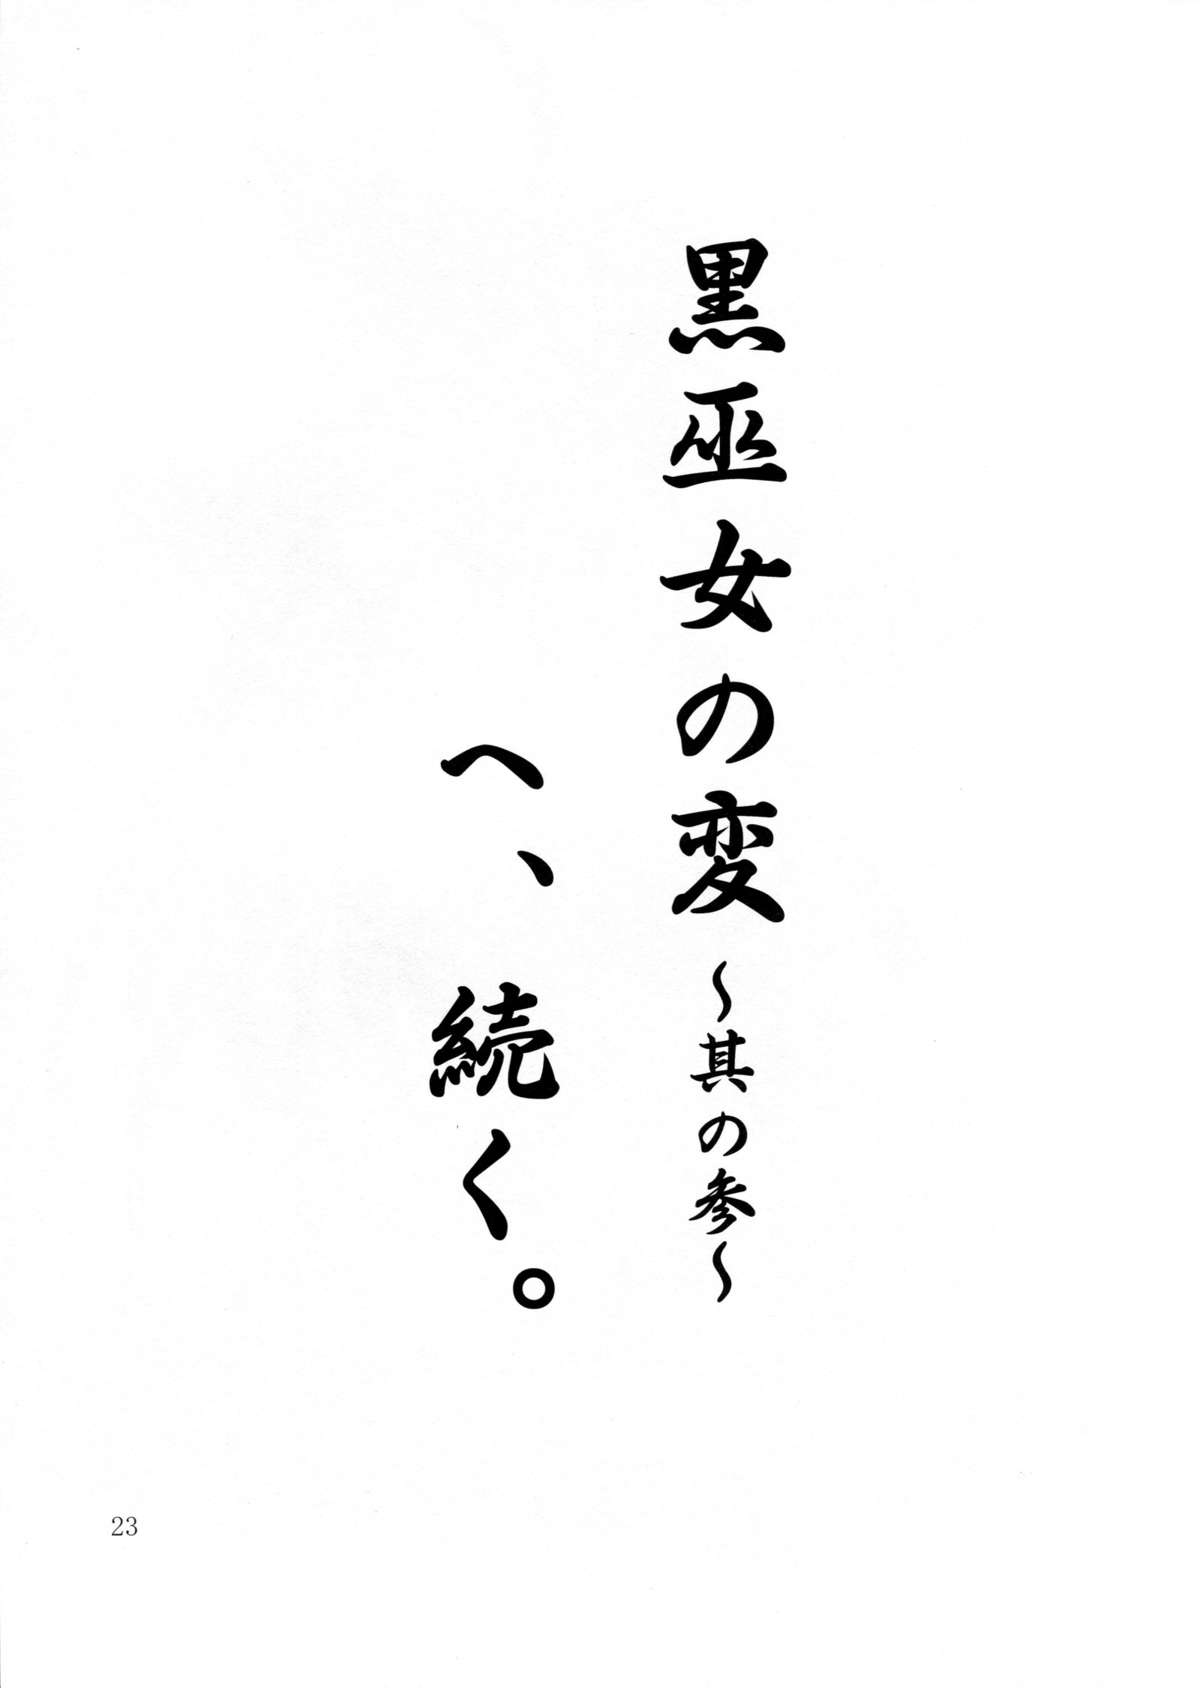 黒巫女の変～其の参～
へ、続く。
23